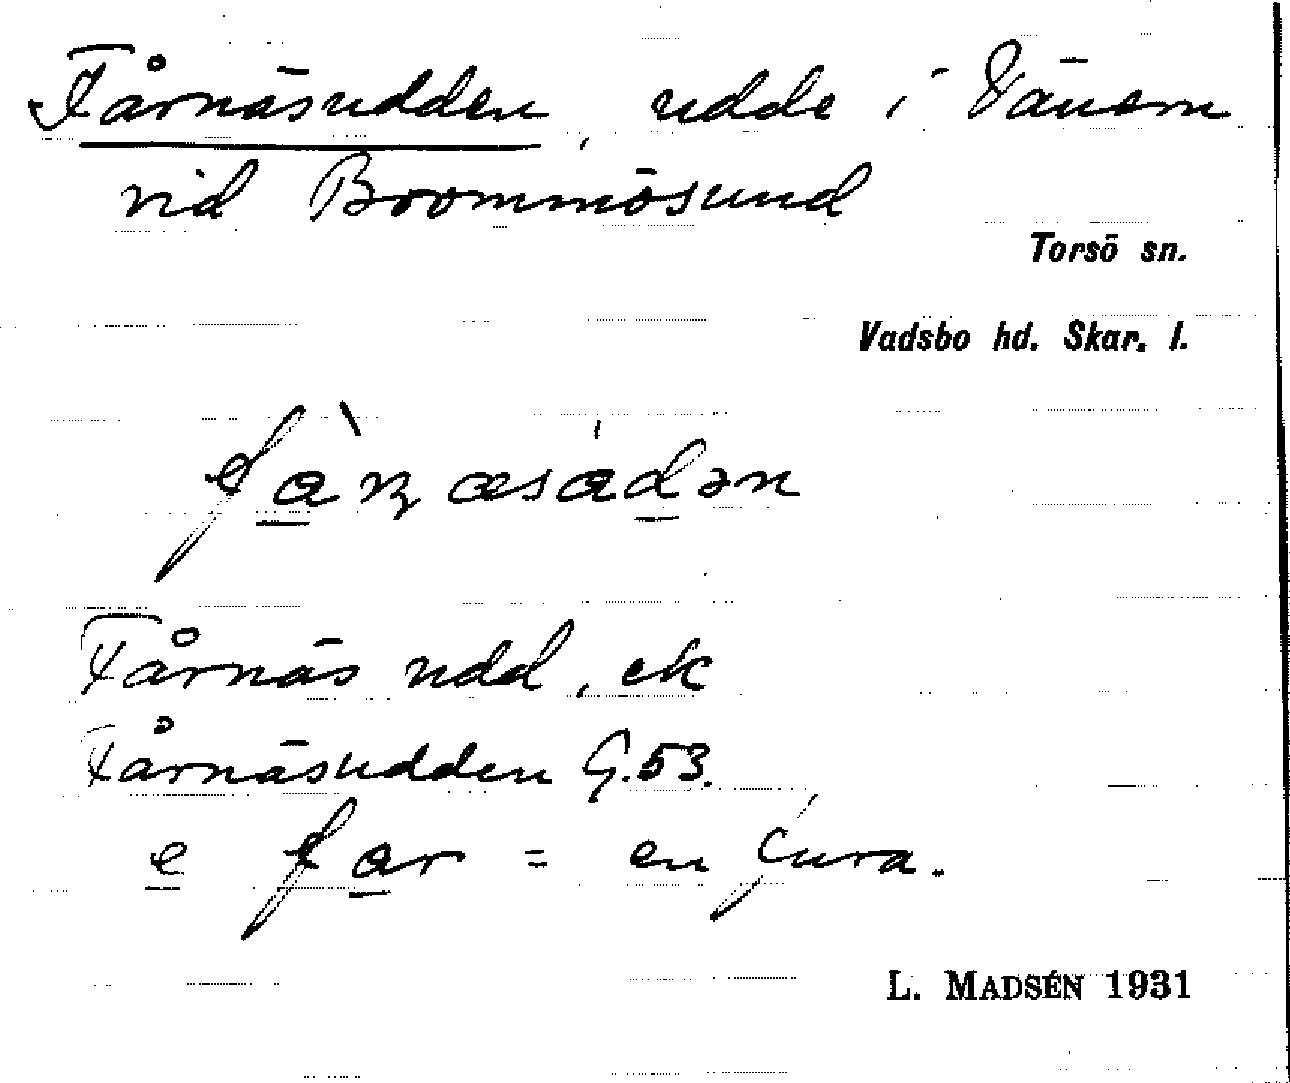 Fårnäsudden, udde i Vänern
vid Brommösund
Torsö sn.
Vadsbo hd. Skar. l.
Fårnäs udd, ek
Fårnäsudden G. 53.
e far = en fura.
L. MADSÉN 1931